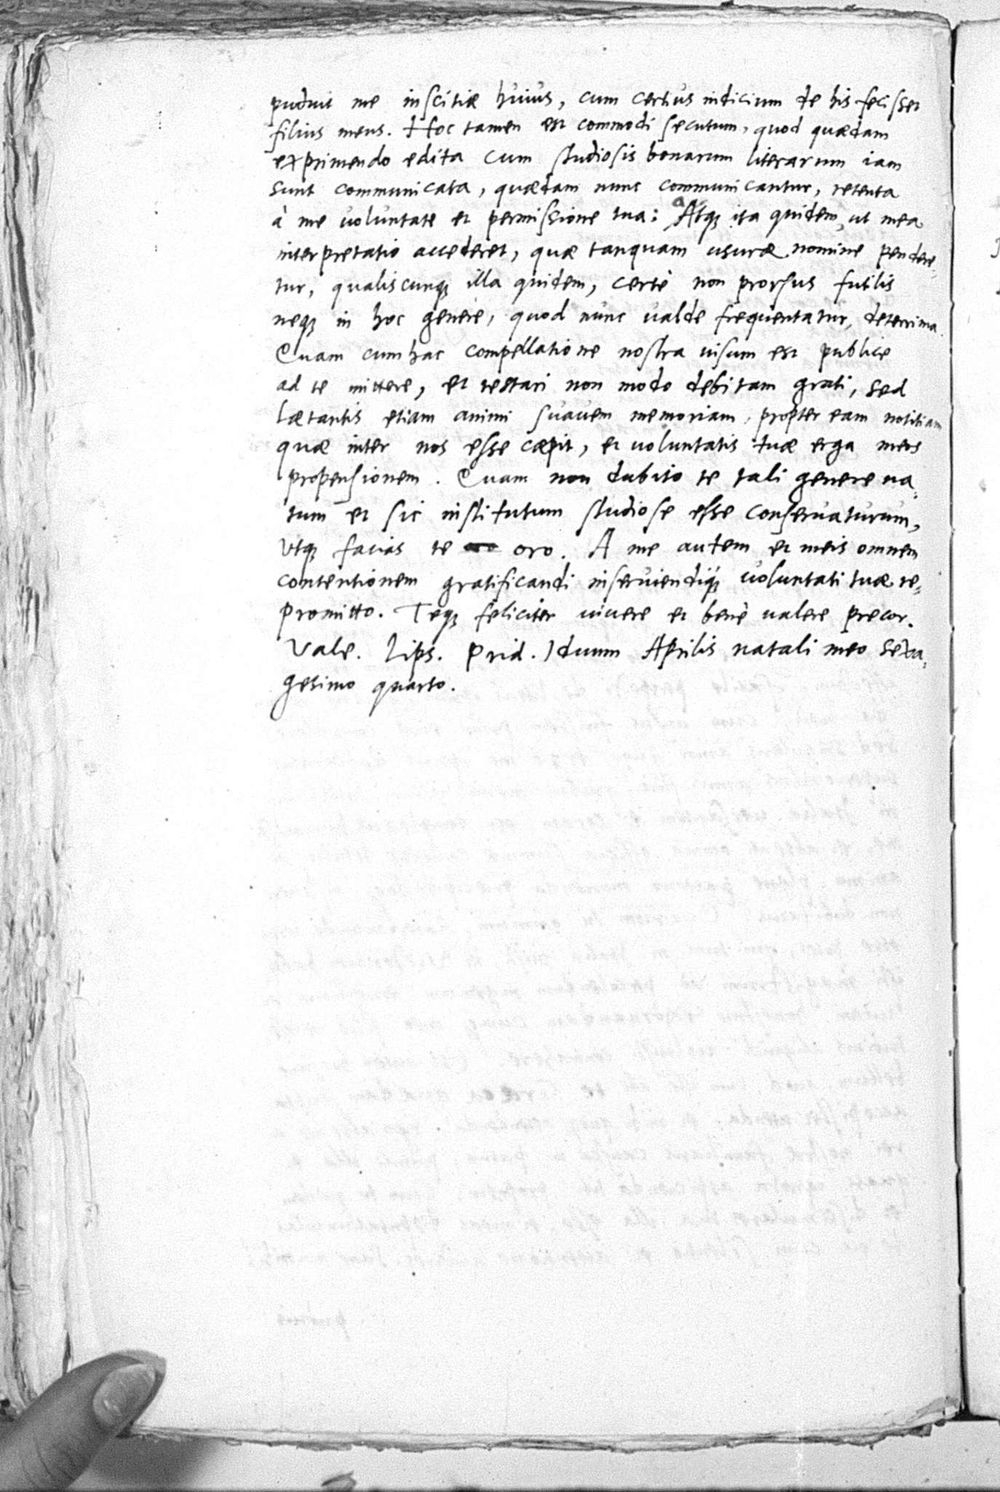 puduit me inscitiæ huius, cum certius indicium de his fecisset
filius meus. Hoc tamen est commodi secutum, quod quædam
exprimendo edita cum studiosis bonarum literarum iam
sunt communicata, quædam nunc communicantur, retenta
à me voluntate et permissione tua: Atque ita quidem, ut mea
interpretatio accederet, quæ tanquam usuræ nomine pendere-
tur, qualiscunque illa quidem, certè non prorsus futilis
neque in hoc genere, quod nunc valde frequentatur, deterrima.
Quam cum hac compellatione nostra visum est publice
ad te mittere, et testari non modo debitam grati, sed
lætantis etiam animi suavem memoriam, propter eam notitiam
quæ inter nos esse cæpit, et voluntatis tuæ erga meos
propensionem. Quam non dubito te tali genere na-
tum et sic institutum studiose esse conservaturum,
Utque facias te oro. A me autem et meis omnem
contentionem gratificandi inserviendique voluntati tuæ re-
promitto. Teque feliciter vivere et benè valere precor.
Vale. Lips. Prid. Iduum Aprilis natali meo sexa-
gesimo quarto.